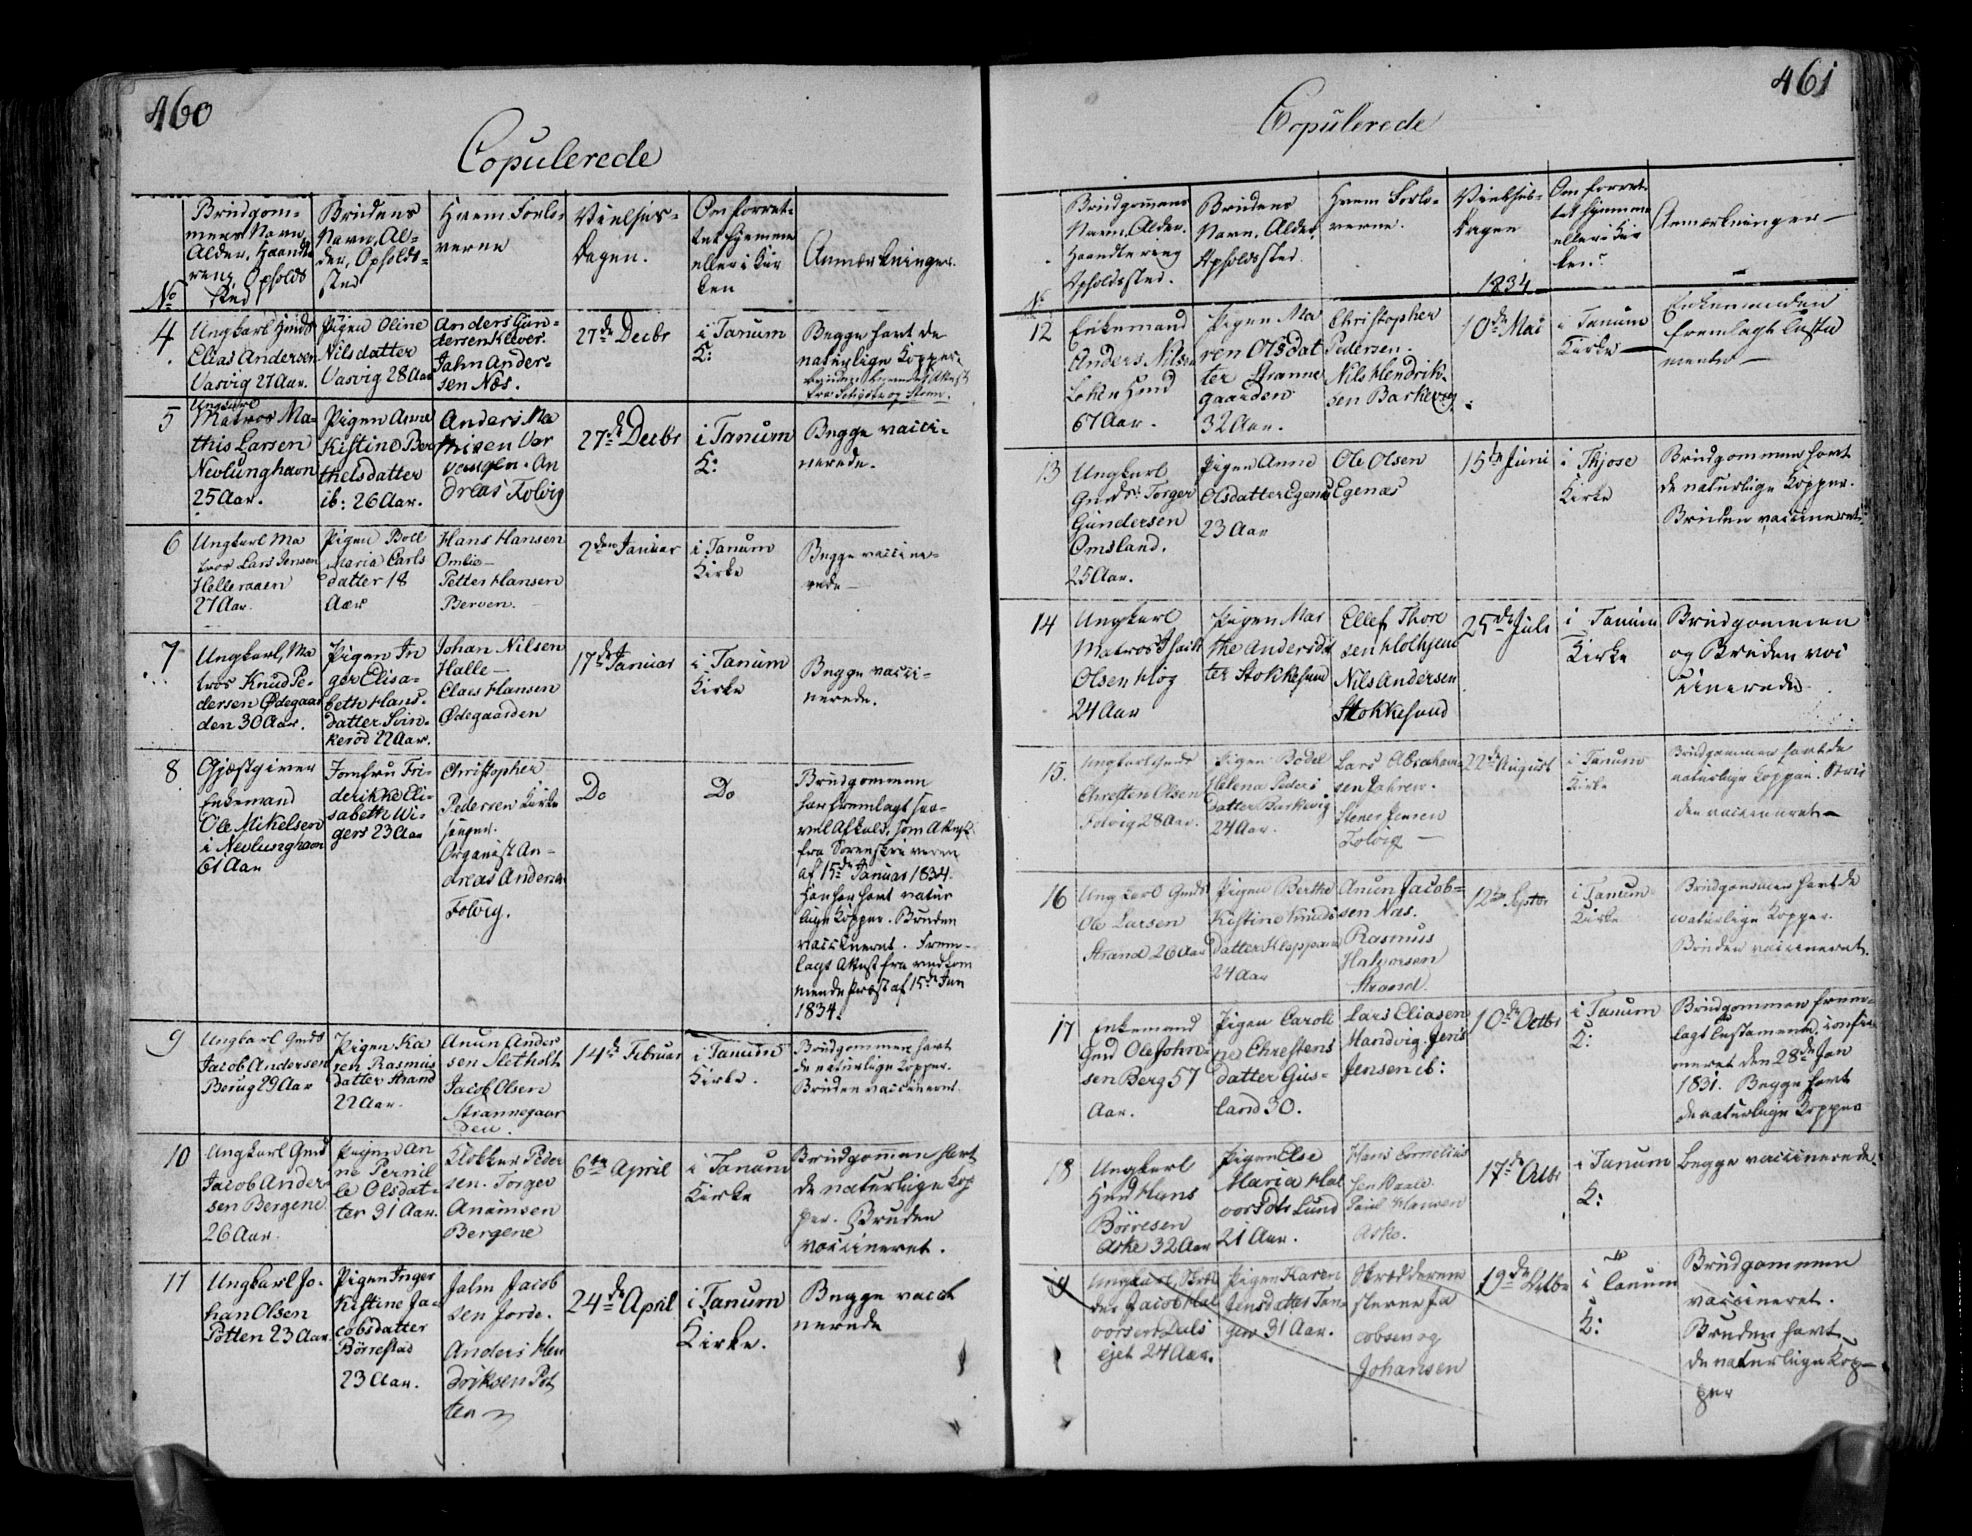 460
Copulerede
No
Brudgom-
mens Navn,
Alder, Haandte
ring, Opholds
sted
Brudens
Navn, Al-
der, Opholds-
sted
Hvem Forlo-
verne
Vielses-
Dagen.
Om forret-
tet hjemme
eller i Kir
ken
Anmærkninger.
4
Ungkarl
Elias Andersen
Vasvig 27 Aar.
Pigen Oline
Nilsdatter
Vasvig 28 Aar
Anders Gun-
dersen Klever.
Jahn Ander-
sen Næs.
27de Decbr
i Tanum
K:
Begge havt de
naturlige Kopper
5
Ungkarl
Matros Ma-
this Larsen
Nevlunghavn
25 Aar.
Pigen Anne
Kistine Ber
thelsdatter
ib: 26 Aar.
Anders Ma
thisen Var
vemgen. An
dreas Folvig
27de Decbr
i Tanum
K:
Begge vacci-
nerede.
6
Ungkarl Ma
tros Lars Jensen
Helleraaen
27 Aar.
Pigen Boel
Maria Carls
datter 18
Aar
Hans Hansen
Omlie-
Petter Hansen
Berven.
2den Januar
i Tanum
Kirke
Begge vaccine-
rede-
7
Ungkarl, Ma
tros Knud Pe-
dersen Ødegaar
den 30 Aar.
Pigen In
ger Elisa-
beth Hans-
datter Svin-
kerød 22 Aar.
Johan Nilsen
Halle-
Claes Hansen
Ødegaarden
17de Januar
i Tanum
Kirke
Begge vacci-
nerede.
8
Gjæstgiver
Enkemand
Ole Mikelsen
i Nevlunghavn
61 Aar
Jomfru Fri-
derikke Eli-
sabeth Wi-
gers 23 Aar
Christopher
Pedersen Kirke
sanger.
Organist An-
dreas Andersen
Folvig.
Do
Do
Brudgommen
har fremlagt saa-
vel Afkald, som Attest
fra Sorenskriveren
af 15de Januar 1834.
Han har havt natur
lige Kopper. Bruden
vaccineret. Frem-
lagt Attest fra vedkom
mende Præst af 15de Jan
1834.
9
Ungkarl Gmds
Jacob Andersen
Berug 29 Aar
Pigen Ka
ren Rasmus
datter Strand
22 Aar.
Anun Ander
sen Sletholt
Jacob Olsen
Strannegaar
den.
14de Februar
i Tanum
Kirke.
Brudgommen havt
de naturlige Kopper.
Bruden vaccineret.
10
Ungkarl Gmd
Jacob Ander-
sen Bergene
26 Aar.
Pigen An
ne Pernil
le Olsdat-
ter 31 Aar.
Klokker Peder
sen. Torger
Anunsen
Bergene
6te April
i Tanum
Kirke
Brudgommen havt
de naturlige Kop
per. Bruden
vaccineret.
11
Ungkarl Jo-
han Olsen
Potten 23 Aar.
Pigen Inger
Kistine Ja-
cobsdatter
Børrestad
23 Aar.
Jahn Jacob
sen Jorde.
Anders Hen
driksen Pot
ten
24de April
i Tanum
Kirke.
Begge vacci
nerede
461
Copulerede
No
Brudgomens
Navn, Alder.
Haandtering
Opholdssted.
Brudens
Navn, Alder,
Opholdssted.
Hvem Forlo-
verne.
Vielses-
dagen
1834
Om forret-
tet hjemme
eller i Kir
ken.
Anmærkninger-
12
Enkemand
Anders Nilsen
67 Aar.
Pigen Ma
ren Olsdat
ter Stranne
gaarden
32 Aar.
Christopher
Pedersen.
Nils Hendrik-
sen Barkevig
10de Mai
i Tanum
Kirke
Enkemanden
fremlagt
13
Ungkarl
Gmds: Torger
Gundersen
Omsland.
25 Aar.
Pigen Anne
Olsdatter Egenæs
23 Aar
Ole Olsen
Egenæs
15de Juni
i Thjose
Kirke
Brudgommen havt
de naturlige Kopper.
Bruden vaccineret.
14
Ungkarl
Matros Isaih
Olsen Høg
24 Aar
Pigen Mar
the Andersdt
ter Stokkesund
Ellef Thore
sen Holhjem
Nils Andersen
Stokkesund
25de Juli
i Tanum
Kirke
Brudgommen
og Bruden vac
cinerede.
15.
Ungkarl
Chresten Olsen
Folvig 28 Aar.
Pigen Bodel
Helena Peders
datter Barkevig
24 Aar.
Lars Abraham
sen
Stener Jensen
Folvig-
22de August
i Tanum
Kirke
Brudgommen havt de
naturlige Kopper. Bru
den vaccineret-
16
Ungkarl Gmds
Ole Larsen
Strand 26 Aar
Pigen Berthe
Kistine Knuds
datter Kleppan
24 Aar
Anun Jacob-
sen Næs.
Rasmus
Halvorsen
Strand.
12te Septbr
i Tanum
Kirke
Brudgommen havt de
naturlige Kopper.
Bruden vaccineret.
17
Enkemand
Gmd Ole John-
sen Berg 57
Aar.
Pigen Caroli
ne Chrestens
datter Gus-
land 30.
Lars Eliasen
Handvig. Jens
Jensen ib:
10de Octbr
i Tanum
K:
Brudgommen frem-
lagt Testamente, confir
meret den 28de Jan
1831. Begge havt
de naturlige Kopper
18
Ungkarl
Hans
Børresen
Aske 32 Aar
Pigen Else
Maria Hal
vorsdtr Lund
21 Aar.
Hans Cornelius
sen Vaale
Poul Hansen
Aske.
17de Octbr
i Tanum
K:
Begge vaccinerede.
19
Ungkarl, Skræd
der Jacob Hal
vorsen Dals
ejet 24 Aar.
Pigen Karen
Jensdatter Tan-
gen 31 Aar.
Skrædderme
sterne Ja
cobsen og
Johansen
19de Octbr
i Tanum
K:
Brudgommen
vaccineret.
Bruden havt
de naturlige Kop-
per